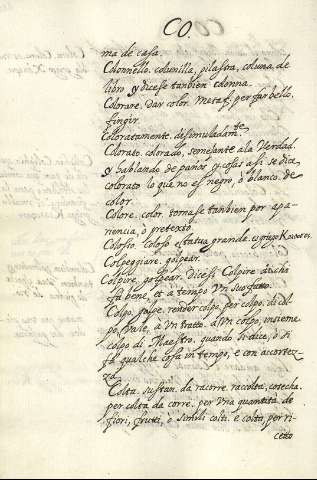 CO.
ma de casa.
Colonnello. colunilla, pilastra, coluna de
libro y dicese tanbien colonna.
Colorare, dar color. Metaf. per far bello.
fingir.
Coloratamente. desimuladam.te
Colorato. colorado, semejante a la Verdad.
y hablando de paños y cosas asi se dice
colorato lo que no es negro, o blanco. de
color.
Colore. color. tomase tanbien por apa-
riencia, o pretexto.
Colosso. coloso estatua grande. es griego
Colpeggiare. golpear.
Colpire, golpear. dicesi Colpire di chi
fa bene, et a tempo un suo fatto.
Colpo, golpe. render colpo, per colpo. di col-
po, vale, a un tratto. a un colpo, insieme
colpo di Maestro. quando si dice, o si
fa qualche cosa in tempo, e con accortez-
za.
Colta. sustan. da racorre. raccolta, cosecha.
per colta da corre. per una quantità de
fiori, frutti, o simili colti. e colta, per ri-
cetto